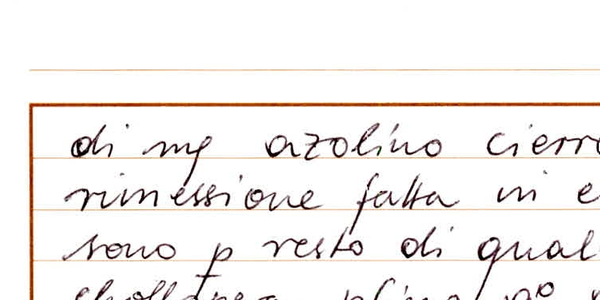 di mg azolino cierr
rimessione fatta in e
sono p resto di qual